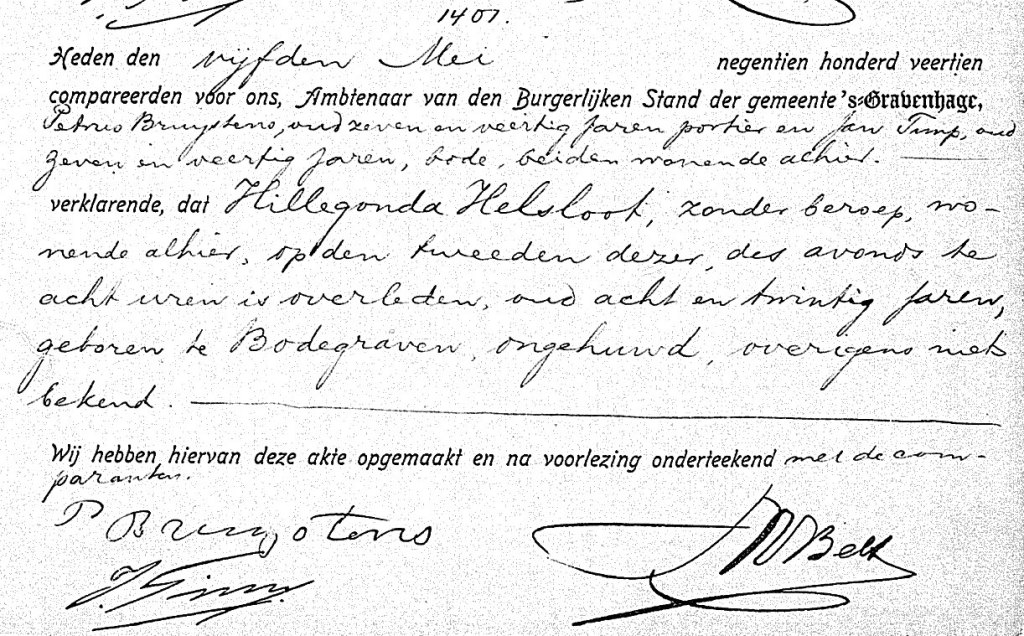 1401.
Heden den vijfden Mei negentien honderd veertien
compareerden voor ons, Ambtenaar van den Burgerlijken Stand der gemeente 's-Gravenhage,
Petrus Bruystens, oud zeven en veertig jaren portier en Jan Timp, oud
zeven en veertig jaren, bode, beiden wonende alhier.
verklarende, dat Hillegonda Helsloot, zonder beroep, wo-
nende alhier, op den tweeden dezer, des avonds te
acht uren is overleden, oud acht en twintig jaren,
geboren te Bodegraven, ongehuwd, overigens niets
bekend.
Wij hebben hiervan deze akte opgemaakt en na voorlezing onderteekend met de com-
paranten.
P Bruystens
Belt